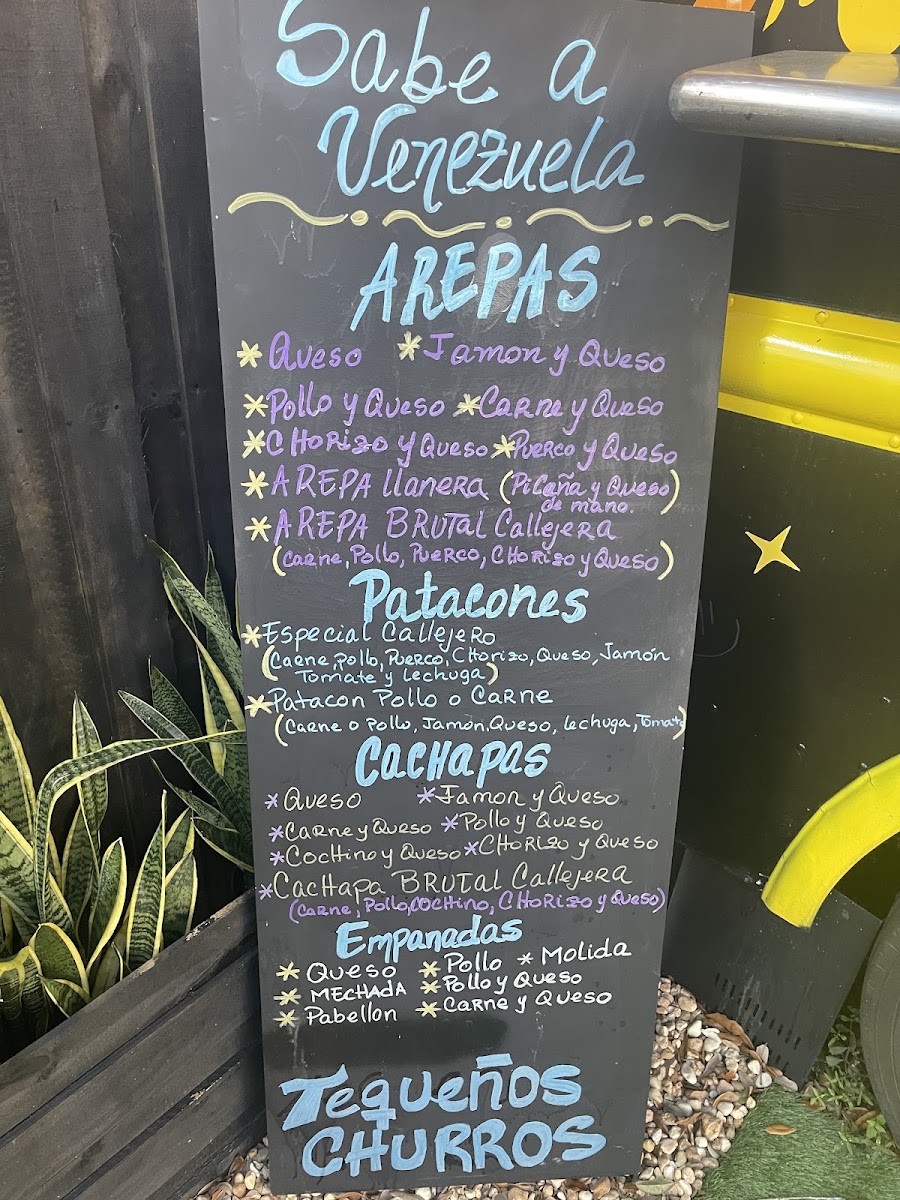 Sabe a
Venezuela
AREPAS
* Queso * Jamon y Queso
* Pollo y Queso * Carne y Queso
* CHorizo y Queso * Puerco y Queso
* AREPA llANERA (Picaña y Queso
de mano.)
* AREPA BRUTAL Callejera
(Carne, Pollo, Puerco, CHorizo y Queso)
Patacones
* Especial Callejero
(Carne, Pollo, Puerco, CHorizo, Queso, Jamón
Tomate y lechuga)
* Patacon Pollo o Carne
(Carne o Pollo, Jamón, Queso, lechuga, Tomate)
CACHAPAS
* Queso * Jamon y Queso
* Carne y Queso * Pollo y Queso
* Cochino y Queso * CHorizo y Queso
* CacHapa BRUTAL Callejera
(Carne, Pollo, COCHINO, CHorizo y Queso)
Empanadas
* Queso * Pollo * Molida
* MECHADA * Pollo y Queso
* Pabellon * Carne y Queso
Tequeños
CHURROS